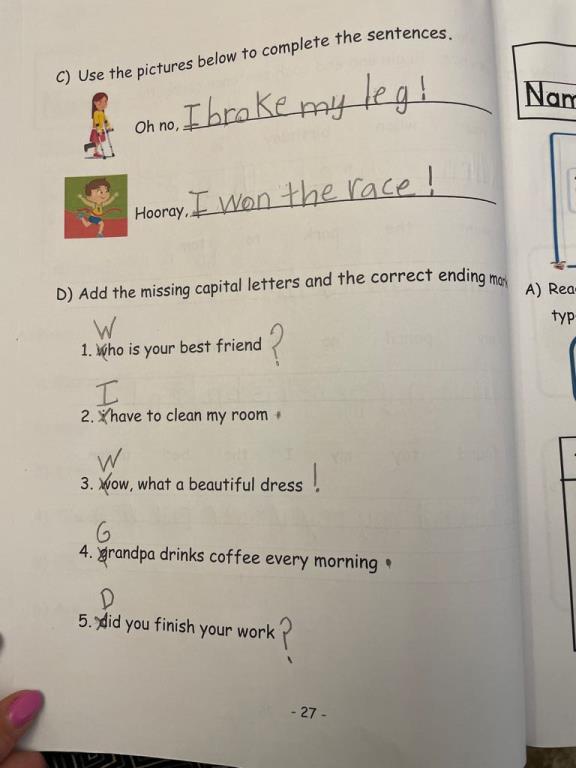 C) Use the pictures below to complete the sentences.
Oh no, I broke my leg!
Hooray, I won the race!
D) Add the missing capital letters and the correct ending mar
W
1. who is your best friend ?
I
2. i have to clean my room .
W
3. wow, what a beautiful dress !
G
4. grandpa drinks coffee every morning .
D
5. did you finish your work ?
- 27 -
Nam
A) Rea
typ